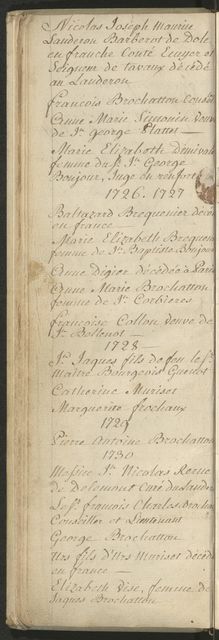 Nicolas Joseph Maurice
Landron Barberot de Dole
en franche Conté Ecuyer et
Seigneur de Tavaux décédé
au Landeron
francois Brochatton
Anne Marie
de Sr. george
Marie Elizabeth
femme du Sr. George
Bonjour,
1726. 1727
Baltazard Brequenier
en france
Marie Elizabeth
femme de Sr. Baptiste Bonjour
Anne Digier décédée a
Anne Marie Brochatton
femme de Sr. Corbieres
francoise Collon veuve de
Sr. Bellenot
1728
Sr. Jaques fils de feu le Sr.
Maitre Bourgeois
Catherine Muriset
Marguerite frochaux
1729
Pierre Antoine Brochatton
1730
Messire Sr. Nicolas
de Delemont Curé du Landeron
Le Sr. francois Charles
Conseiller et Lieutenant
George Brochatton
Urs fils d'Urs Muriset
en france
Elizabeth femme de
Jaques Brochatton